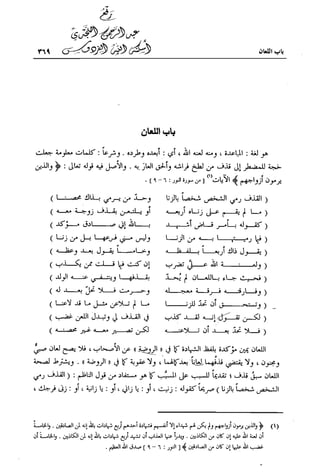 رفع
عبد الرحمن النجدي
أسكنه الله الفردوس
باب اللعان ٣٦٩
باب اللعان
هو لغة : المباعدة ، ومنه لعنه الله ، أي : أبعده وطرده . وشرعاً : كلمات معلومة جعلت
حجة للمضطر إلى قذف من لطخ فراشه وألحق العار به . والأصل فيه قوله تعالى : ﴿ والذين
يرمون أزواجهم ﴾ الآيات(١) ( من سورة النور : ٦ - ٩ ) .
( القذف رمي الشخص شخصاً بالزنا وحدّ من يرمي بذاك محصنا )
( ما لم يقم على زناه أربعه أو يلتعن بقذف زوجة معه )
( كقوله بأمر قاض أشهد بالله إني صادق مؤكد )
( فيما رميتها به من الزنا وليس مني فرعها بل من زنا )
( يقول ذاك أربعاً بلفظه وخامساً يقول بعد وعظه )
( ولعنة الله علي تضرب إن كنت فيما قلت ممن يكذب )
( فحيث جاء باللعان لم يحدّ بقذفها وينتفي عنه الولد )
( وفارقته فرقة معجله وحرمت فلا تحل بعد له )
( وتستحق أن تحد للزنا ما لم تلاعن مثل ما قد لاعنا )
( لكن تقول إنه لقد كذب في القذف لي وتبدل اللعن غضب )
( فلا تحد بعد أن تلاعنه لكن تصير معه غير محصنه )
اللعان يمين مؤكدة بلفظ الشهادة كما في « الروضة » عن الأصحاب ، فلا يصح لعان صبي
ومجنون ، ولا يقتضي قذفهما لعاناً بعد كمالهما ، ولا عقوبة كما في « الروضة » ، ويشترط لصحة
اللعان سبق قذف ؛ تقديماً للسبب على المسبَّب كما هو مستفاد من قول الناظم : ( القذف رمي
الشخص شخصاً بالزنا ) صريحاً كقوله : زنيت ، أو : يا زاني ، أو : يا زانية ، أو : زنى فرجك ،
(١) ﴿ والذين يرمون أزواجهم ولم يكن لهم شهداء إلا أنفسهم فشهادة أحدهم أربع شهادات بالله إنه لمن الصادقين . والخامسة
أن لعنة الله عليه إن كان من الكاذبين . ويدرأ عنها العذاب أن تشهد أربع شهادات بالله إنه لمن الكاذبين . والخامسة أن
غضب الله عليها إن كان من الصادقين ﴾ ( النور : ٦ - ٩ ) صدق الله العظيم .